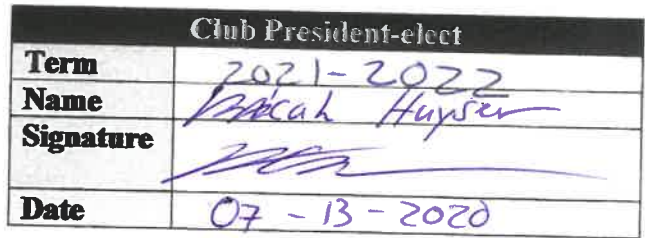 Club President-elect
Term 2021-2022
Name Huyser
Signature
Date 07-13-2020